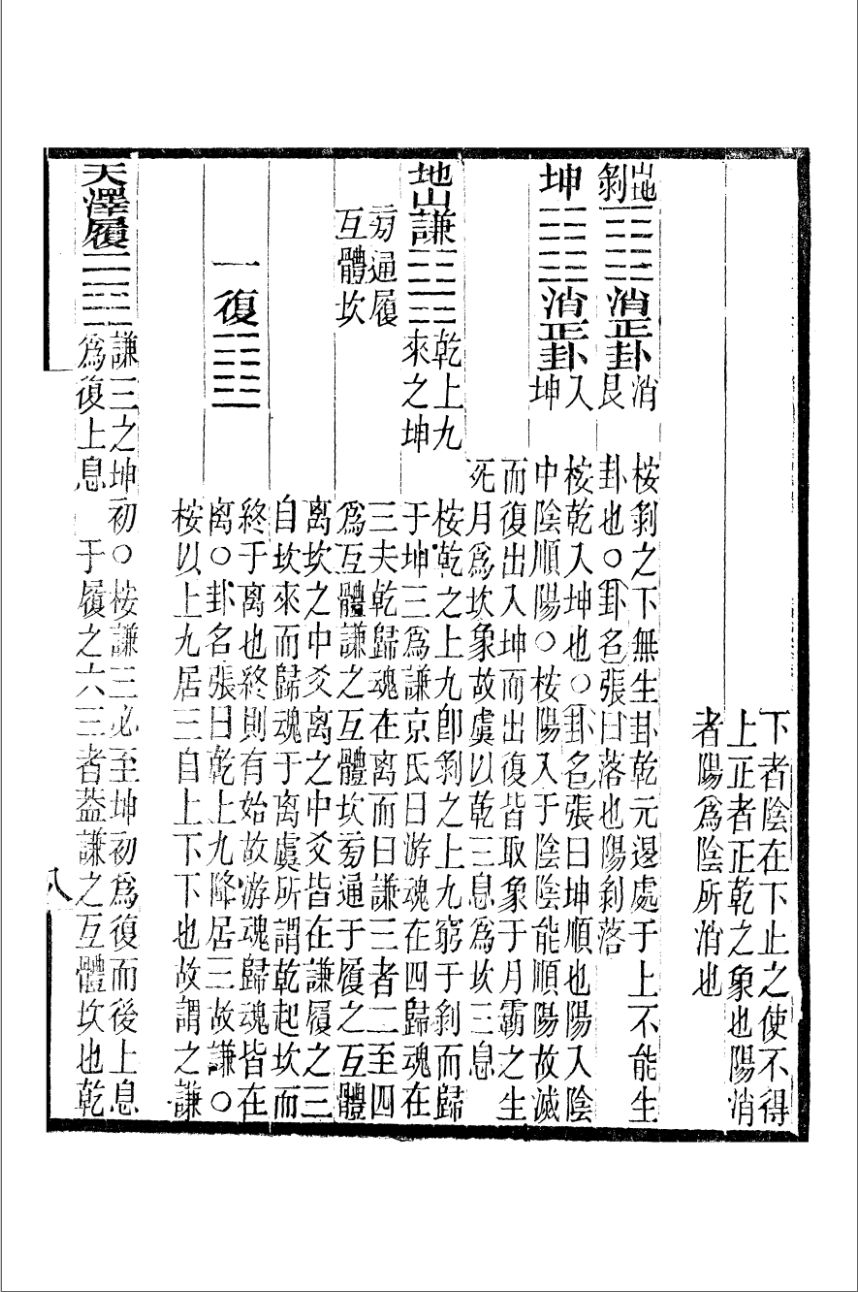 下者陰在下止之使不得
上正者正乾之象也陽消
者陽爲陰所消也
山地剝䷖消正卦消艮
桉剝之下無生卦乾元退處于上不能生
卦也○卦名張曰落也陽剝落
坤䷁消正卦入坤
桉乾入坤也○卦名張曰坤順也陽入陰
中陰順陽○桉陽入于陰陰能順陽故滅
而復出入坤而出復皆取象于月霸之生
死月爲坎象故虞以乾三息爲坎三息
地山謙䷎乾上九來之坤
桉乾之上九卽剝之上九窮于剝而歸
于坤三爲謙京氏曰游魂在四歸魂在
三夫乾歸魂在离而曰謙三者二至四
旁通履
互體坎
爲互體謙之互體坎旁通于履之互體
离坎之中爻离之中爻皆在謙履之三
自坎來而歸魂于离虞所謂乾起坎而
終于离也終則有始故游魂歸魂皆在
离○卦名張曰乾上九降居三故謙○
一復䷗
桉以上九居三自上下下也故謂之謙
天澤履䷉謙三之坤初爲復上息
○桉謙三必至坤初爲復而後上息
于履之六三者葢謙之互體坎也乾
八